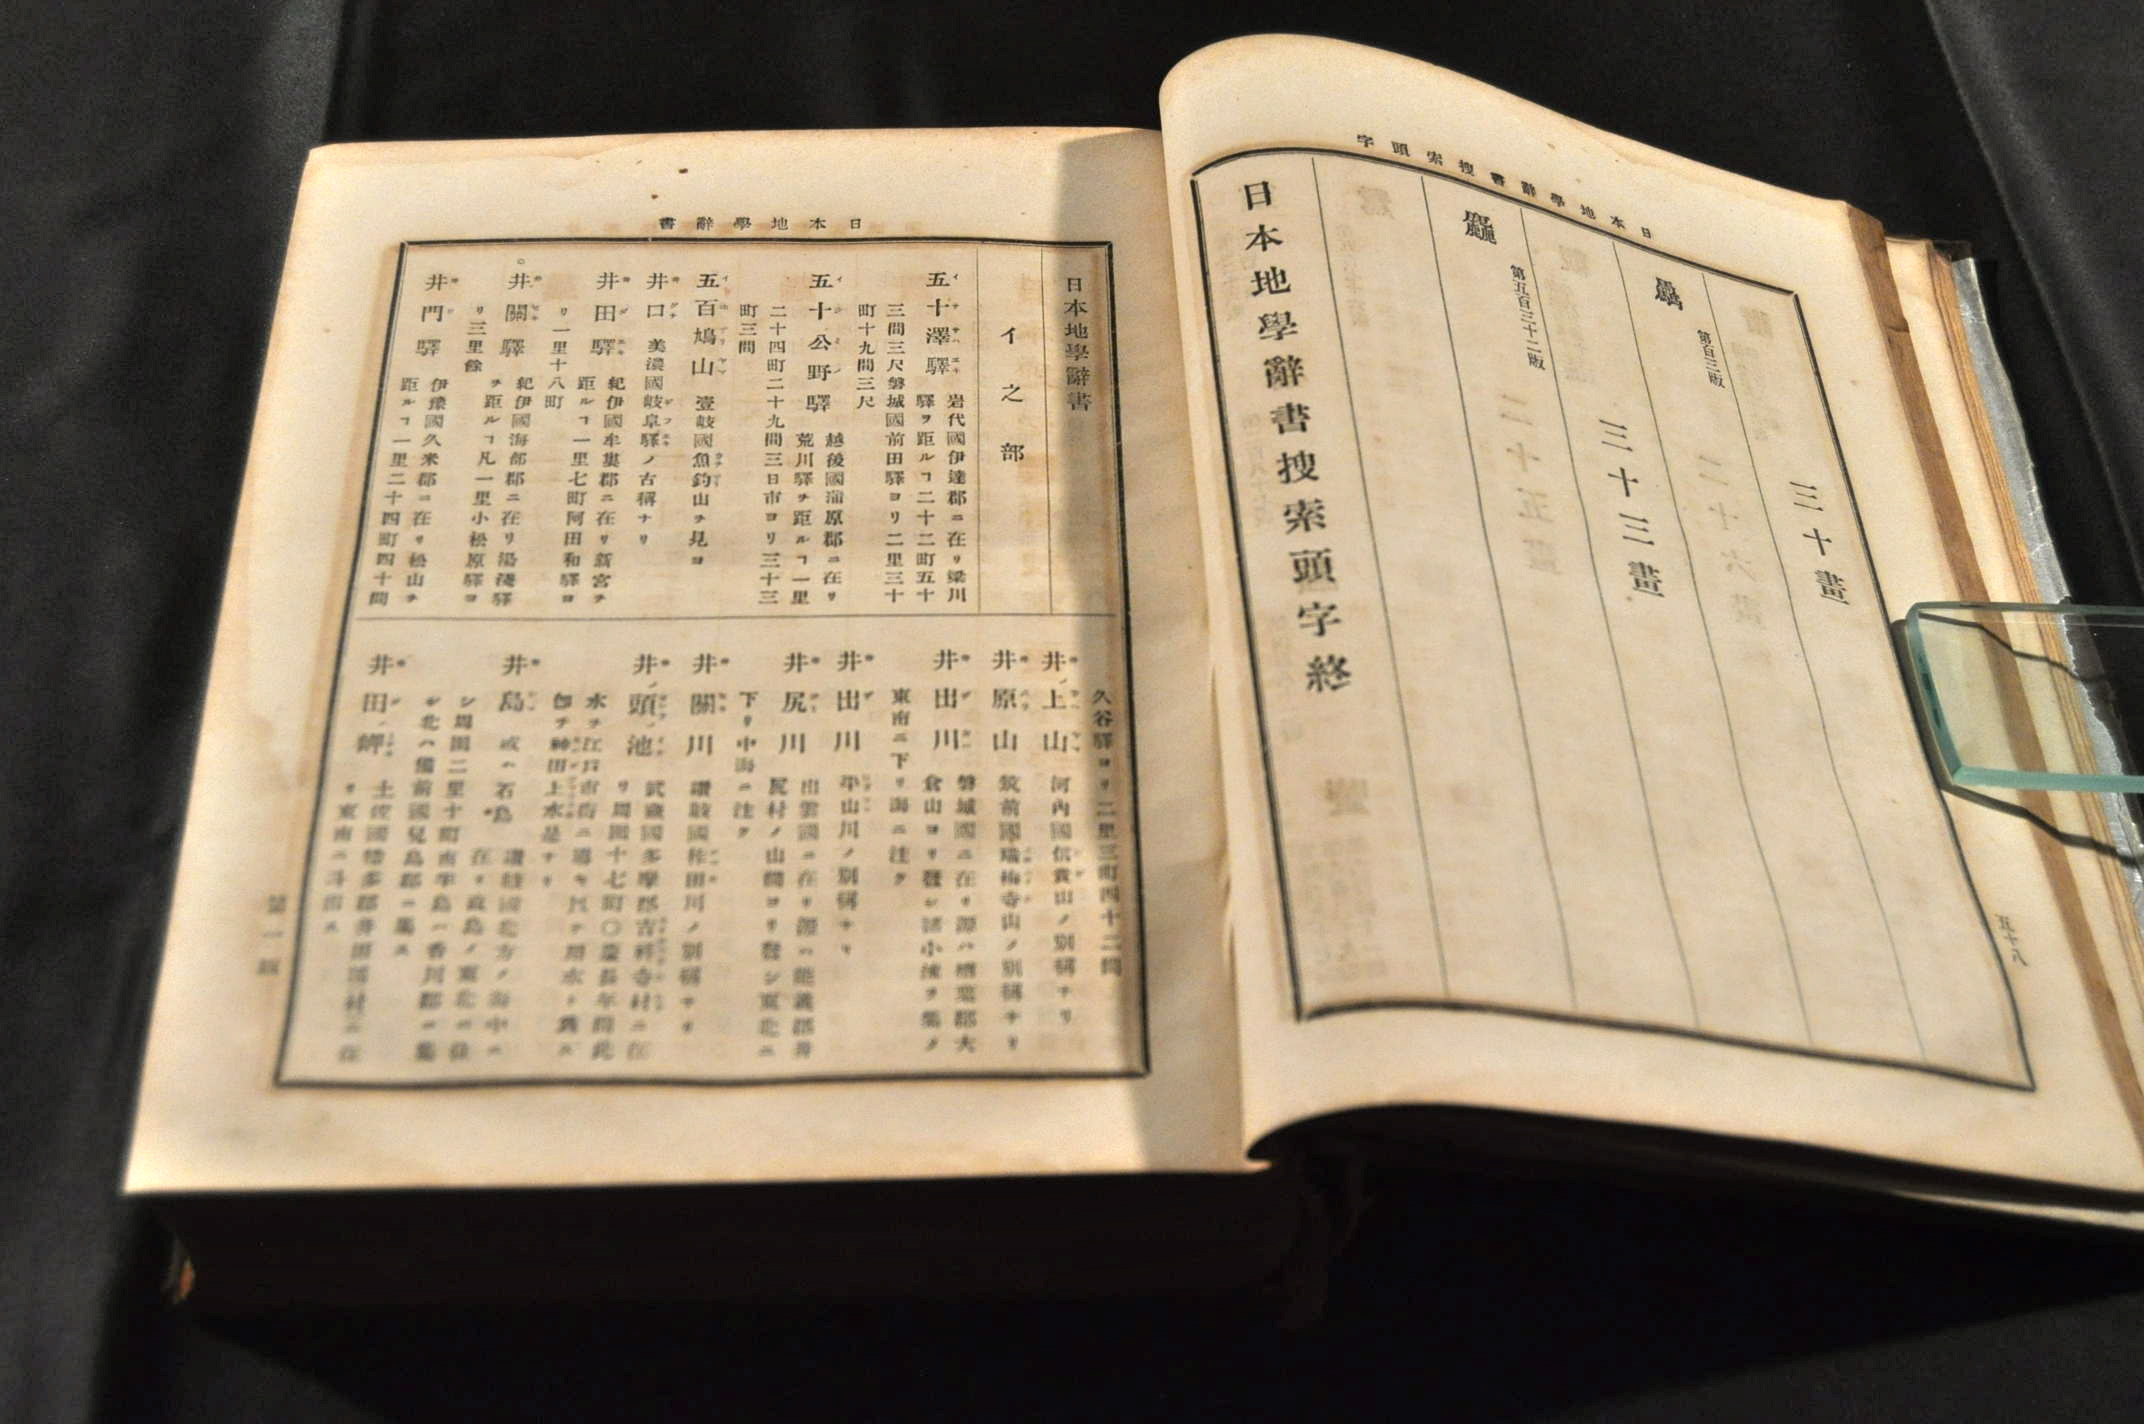 日本地學辭書捜索頭字
三十畫
第百三版
三十三畫
第五百三十二版
日本地學辭書捜索頭字終
五十八
日本地學辭書
日本地學辭書
イ之部
五十澤驛 岩代國伊達郡ニ在リ梁川
驛ヲ距ルヿ二十二町五十
三間三尺磐城國前田驛ヨリ二里三十
町十九間三尺
五十公野驛 越後國蒲原郡ニ在リ
荒川驛ヲ距ルヿ一里
二十四町二十九間三日市ヨリ三十三
町三間
五百鳩山 壹岐國魚釣山ヲ見ヨ
井口 美濃國岐阜驛ノ古稱ナリ
井田驛 紀伊國牟婁郡ニ在リ新宮ヲ
距ルヿ一里七町阿田和驛ヨ
リ一里十八町
井關驛 紀伊國海部郡ニ在リ湯淺驛
ヲ距ルヿ凡一里小松原驛ヨ
リ三里餘
井門驛 伊豫國久米郡ニ在リ松山ヲ
距ルヿ一里二十四町四十間
久谷驛ヨリ二里三町四十二間
井ノ上山 河內國信貴山ノ別稱ナリ
井原山 筑前國瑞梅寺山ノ別稱ナリ
井出川 磐城國ニ在リ源ハ楢葉郡大
倉山ヨリ發シ諸小流ヲ集メ
東南ニ下リ海ニ注ク
井出川 平山川ノ別稱ナリ
井尻川 出雲國ニ在リ源ハ能義郡井
尻村ノ山間ヨリ發シ東北ニ
下リ中海ニ注ク
井關川 讃岐國柞田川ノ別稱ナリ
井ノ頭ノ池 武藏國多摩郡吉祥寺村ニ在
リ周圍十七町〇慶長年間此
水ヲ江戸市街ニ通シ以テ用水ト爲ス
卽チ神田上水是ナリ
井島 或ハ石島 讃岐國北方ノ海中ニ
在リ直島ノ東北ニ位
シ周圍二里十町南半島ハ香川郡ニ屬
シ北ハ備前國兒島郡ニ屬ス
井田ノ岬 土佐國幡多郡井田浦村ニ在
リ東南ニ斗出ス
第一版